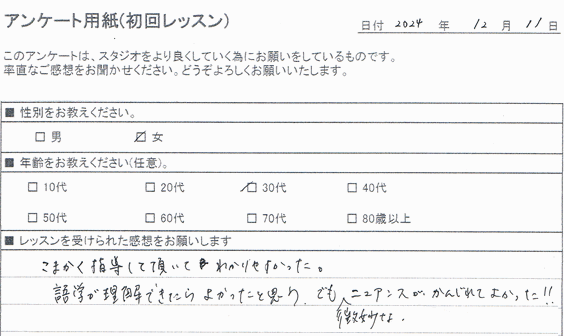 アンケート用紙(初回レッスン)
日付 2024 年 12 月 11 日
このアンケートは、スタジオをより良くしていく為にお願いをしているものです。
率直なご感想をお聞かせください。どうぞよろしくお願いいたします。
■ 性別をお教えください。
□ 男 ☑ 女
■ 年齢をお教えください(任意)。
□ 10代 □ 20代 ☑ 30代 □ 40代
□ 50代 □ 60代 □ 70代 □ 80歳以上
■ レッスンを受けられた感想をお願いします
こまかく指導して頂いて わかりやすかった。
語学が理解できたらよかったと思い、でも微妙なニュアンスがかんじれてよかった!!